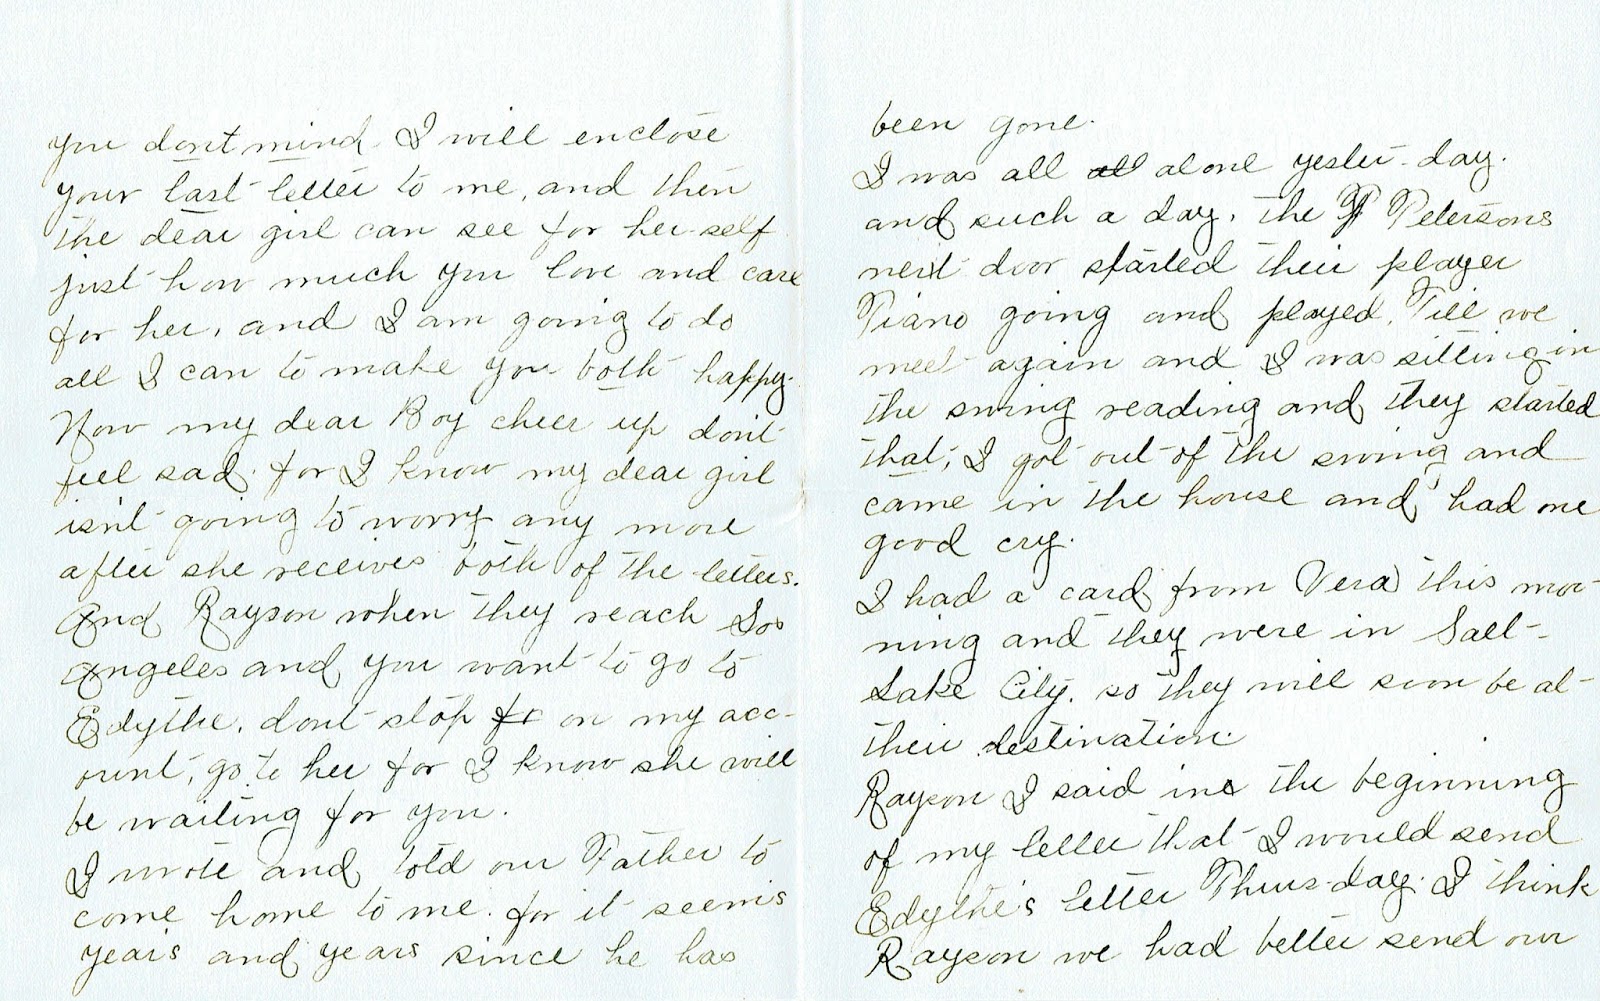 you dont mind. I will enclose
your last letter to me, and then
the dear girl can see for her-self
just how much you love and care
for her, and I am going to do
all I can to make you both happy.
Now my dear Boy cheer up don't
feel sad. for I know my dear girl
isn't going to worry any more
after she receives both of the letters.
And Rayson when they reach Los
Angeles and you want to go to
Edythe, dont stop for on my acc-
ount, go to her for I know she will
be waiting for you.
I wrote and told our Father to
come home to me. for it seems
years and years since he has
been gone.
I was all all alone yester-day.
and such a day, the P Petersons
next door started their player
Piano going and played, Till we
meet again and I was sitting in
the swing reading and they started
that, I got out of the swing and
came in the house and had me
good cry.
I had a card from Vera this mor-
ning and they were in Salt-
Lake City. so they will soon be at
their destination.
Rayson I said in the beginning
of my letter that I would send
Edythe's letter Thurs-day. I think
Rayson we had better send our